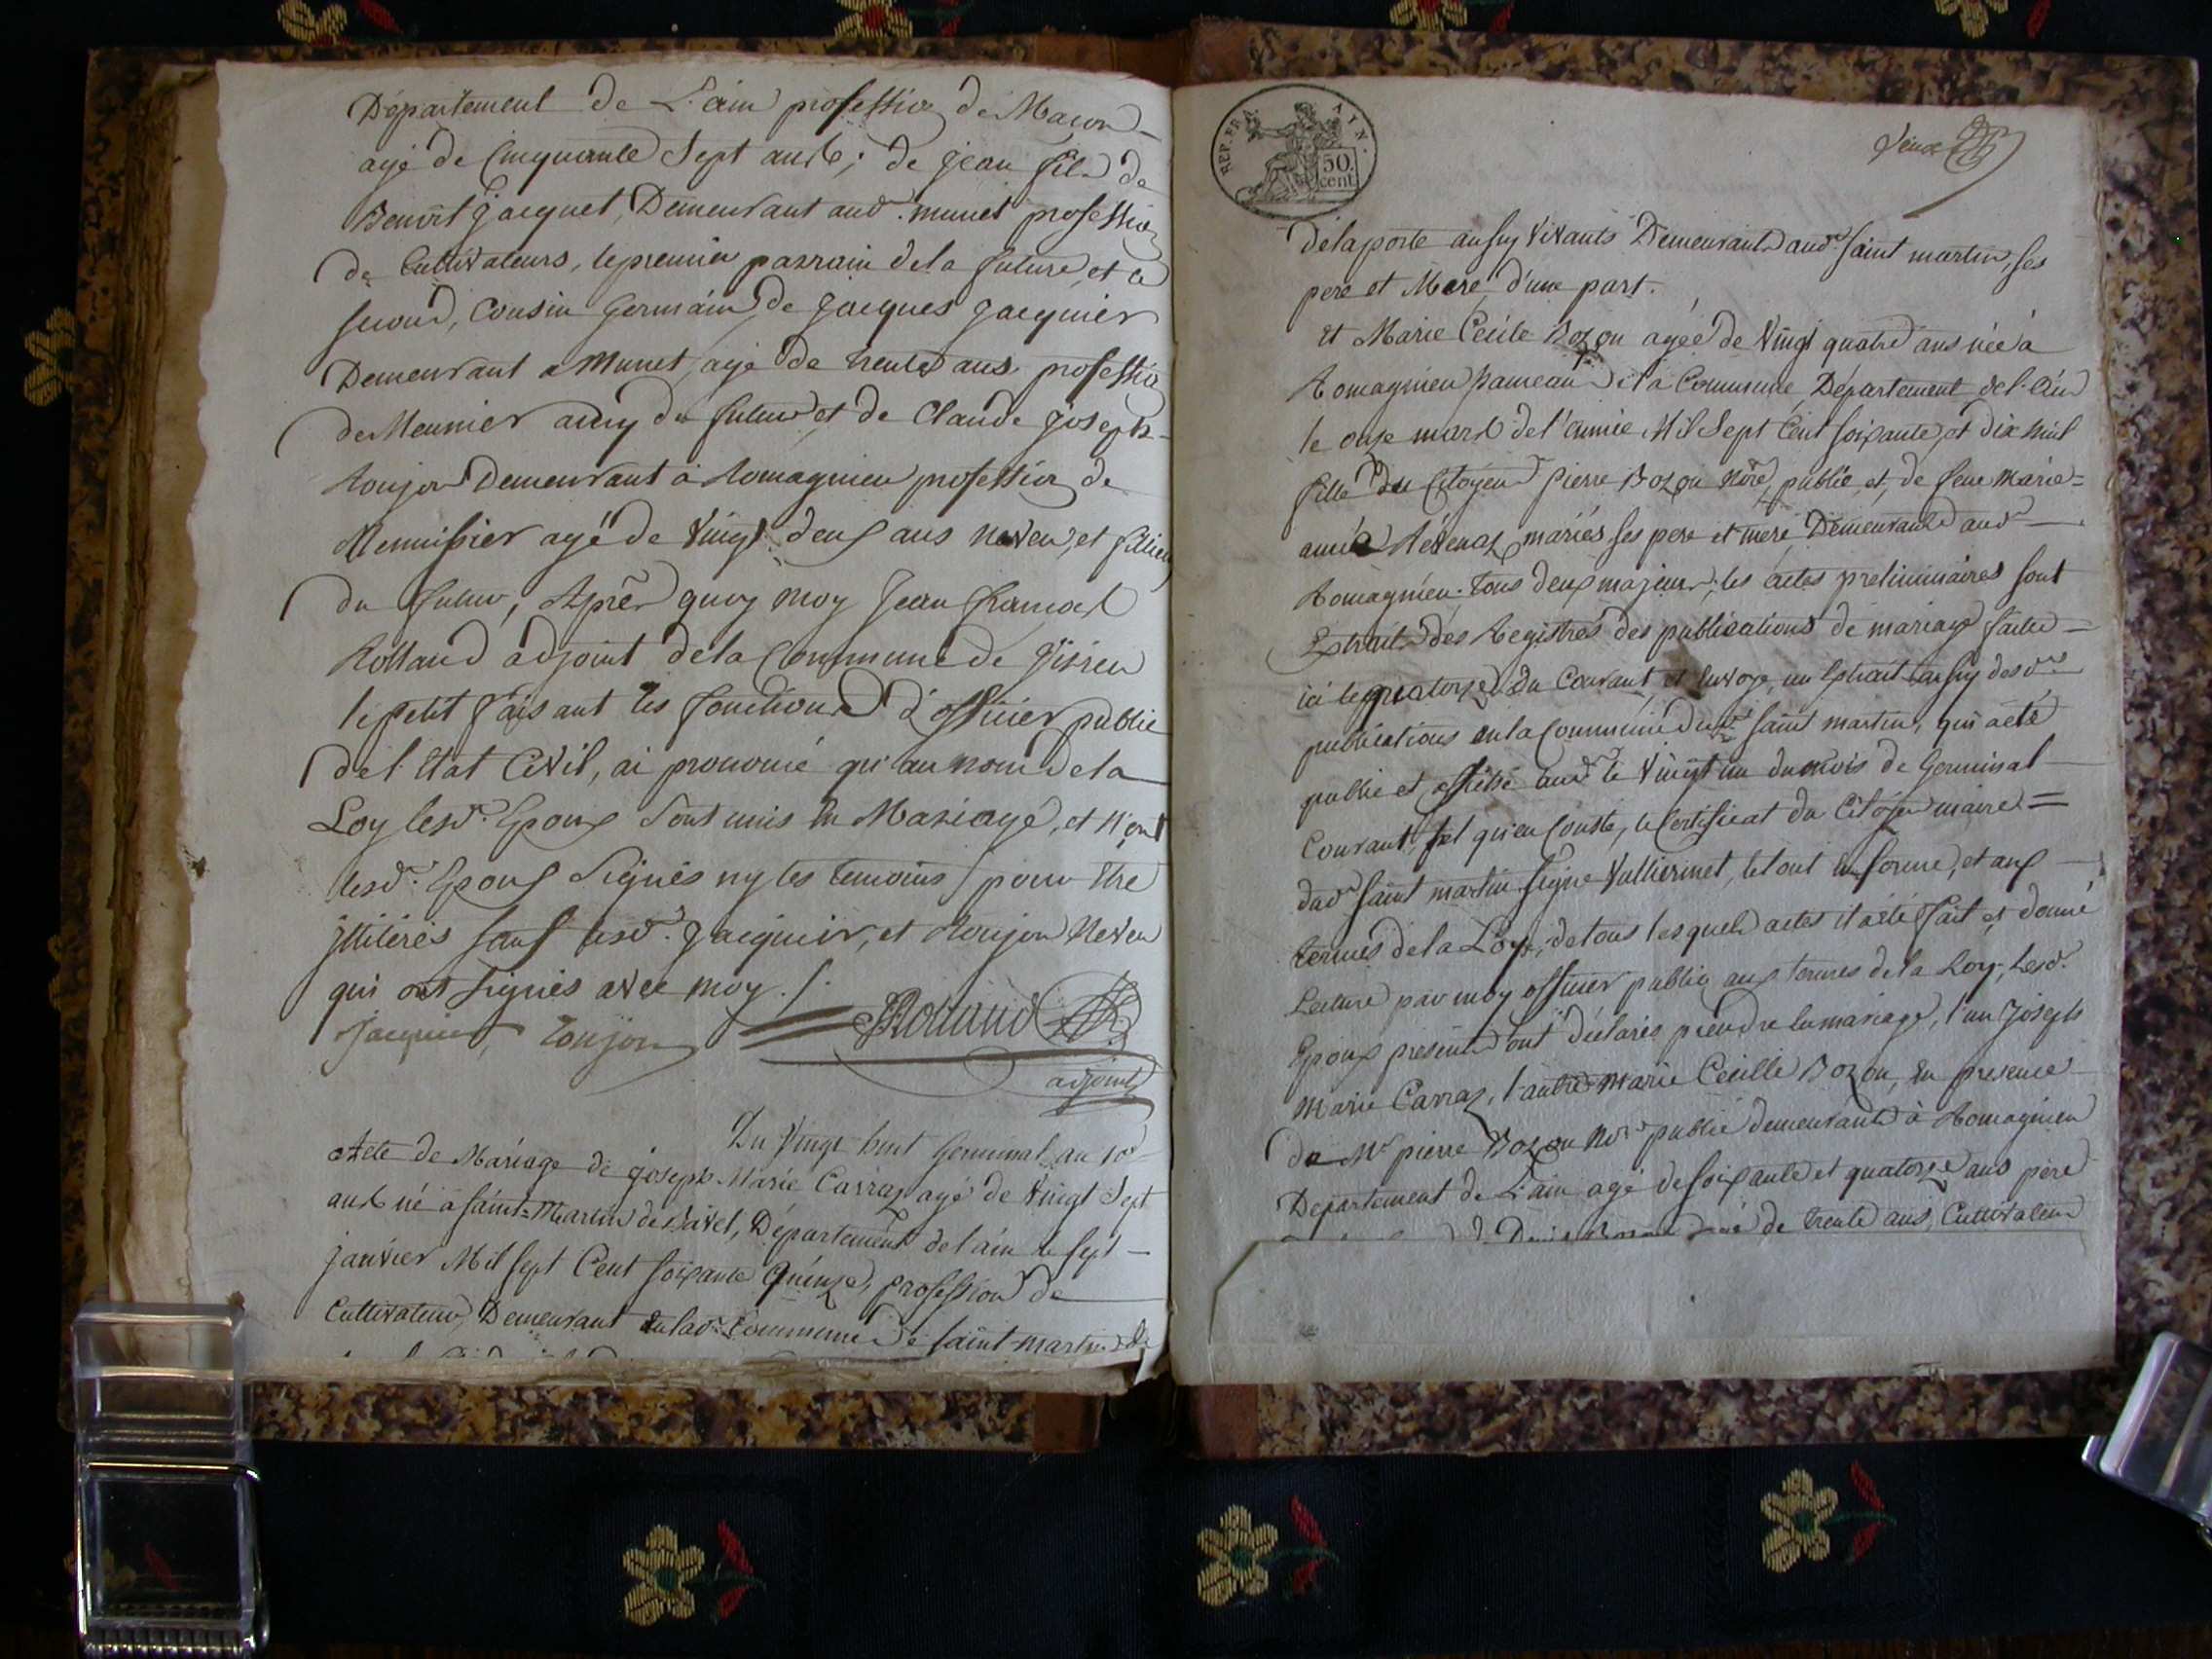 Département de L'ain profession de Macon
agé de Cinquante Sept ans; de jean fils de
Benoit Jacquet, Demeurant aud. munet profession
de Cultivateurs, le premier parrain de la future, et le
second, Cousin Germain, de Jacques Jacquier
Demeurant a Munet, agé de trente ans, profession
de Meunier amy du futur et de Claude joseph
Roujon Demeurant à Romagnieu profession de
Menuisier agé de Vingt deux ans neveu, et
du futur, Après quoy moy Jean francois
Rolland adjoint de la Commune de Yzieu
le petit faisant les fonctions d'officier public
de l'Etat Civil, ai prononcé qu'au nom de la
Loy lesd. Epoux Sont unis En Mariage, et n'ont
lesd. Epoux Signés ny les temoins pour Etre
jlliterés sauf lesd. Jacquier, et Roujon Neveu
qui ont signés avec moy ./.
Jacquier, Roujon JRolland
adjoint
Du Vingt huit Germinal an 10e
Acte de Mariage de joseph Marie Carraz agé de Vingt Sept
ans né à Saint-Martin de Bavel, Département de l'ain le sept
janvier Mil sept Cent soixante quinze, profession de
Cultivateur, Demeurant en lad. Commune de saint-martin de
REP. FRA. AYN. 50. cent
delaporte aussy Vivants Demeurants aud. saint martin, ses
pere et Mere d'une part.
Et Marie Cécile Bozon agée de Vingt quatre ans née à
Romagnieu hameau de la Commune, Département de l'Ain
le onze mars de l'année Mil Sept Cent soixante et dix huit
fille du Citoyen Pierre Bozon Nore public, et de feue Marie=
mariés ses pere et mere Demeurants aud.
Romagnieu. tous deux majeurs; les actes preliminaires sont
Extraits des Registres des publications de mariage faites
ici le quatorze du Courant, et Envoye, un Extrait aussy desd.
publications en la Commune dud. saint martin, qui a été
publié et affiché aud. le Vingt un du mois de Germinal
Courant, tel qu'en Conste, le Certificat du Citoyen maire=
dud. saint martin signé Vulliermet, le tout En forme, et aux
termes de la Loy, de tous lesquels actes il a été fait et donné
Lecture par moy officier public aux termes de la Loy, Lesd.
Epoux presents ont déclarés prendre En mariage, l'un Joseph
Marie Carraz, l'autre Marie Cécille Bozon, En presence
de Mr pierre Bozon Nore public demeurants à Romagnieu
Departement de L'ain agé de soixante et quatorze ans pere
agé de trente ans, Cultivateur